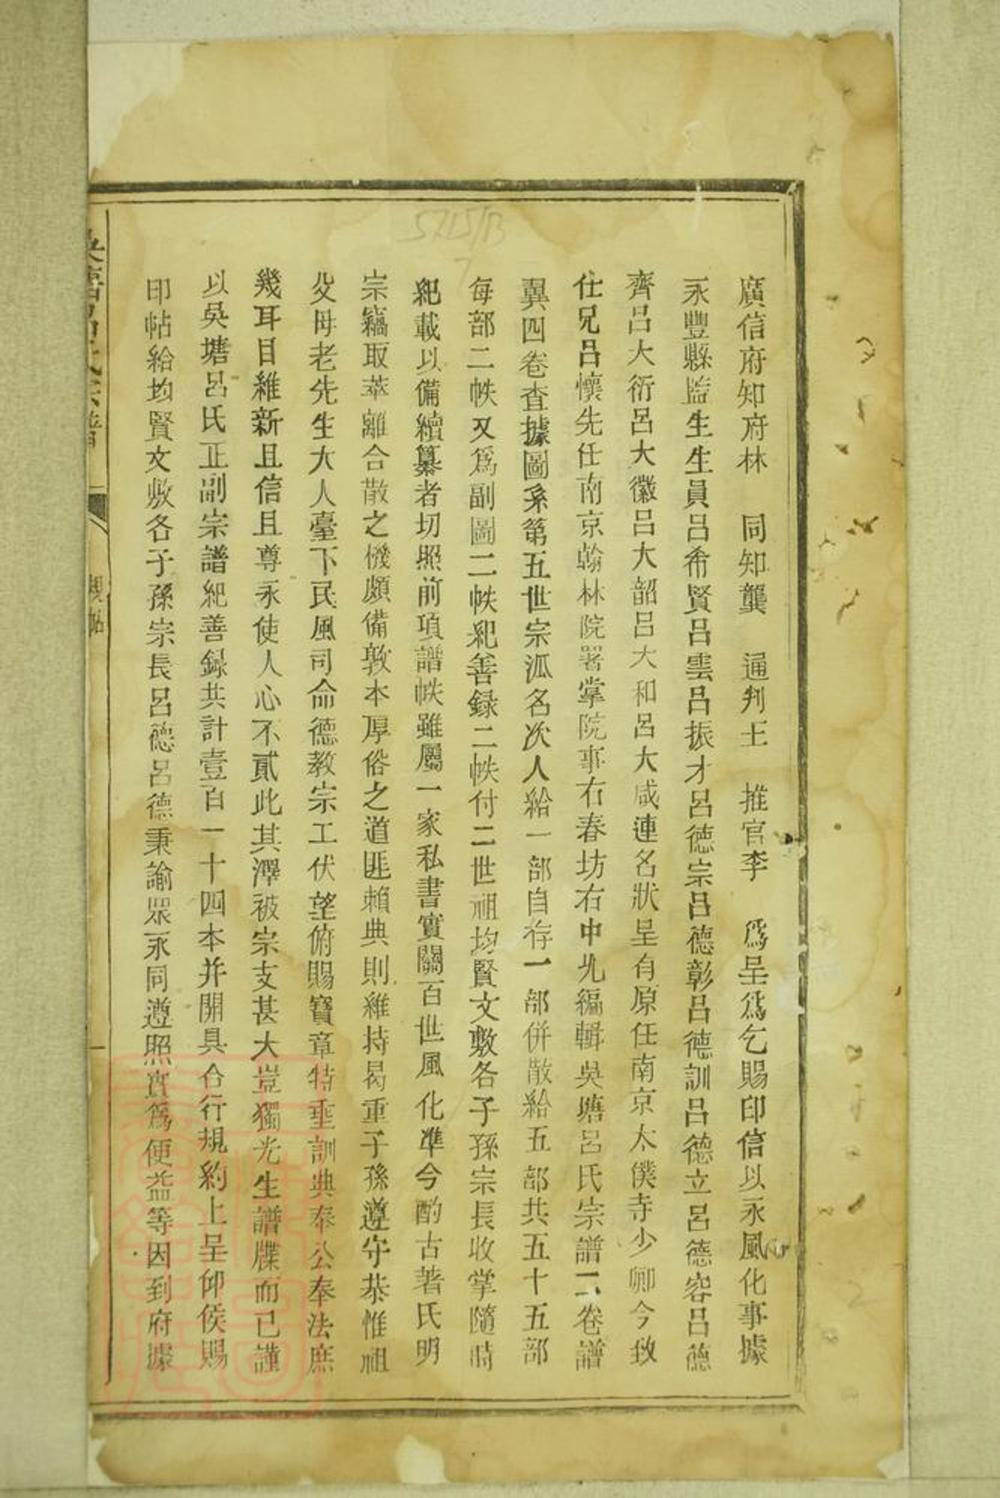 廣信府知府林　同知龔　通判王　推官李　爲呈爲乞賜印信以永風化事據
永豐縣監生生員呂希賢呂雲呂振才呂德宗呂德彰呂德訓呂德立呂德容呂德
齊呂大衍呂大徽呂大韶呂大和呂大咸連名狀呈有原任南京太僕寺少卿今致
仕兄呂懷先任南京翰林院署掌院事右春坊右中允編輯吳塘呂氏宗譜二卷譜
翼四卷查據圖系第五世宗派名次人給一部自存一部併散給五部共五十五部
每部二帙又爲副圖二帙紀善録二帙付二世祖均賢文敷各子孫宗長收掌隨時
紀載以備續纂者切照前項譜帙雖屬一家私書實關百世風化準今酌古著氏明
宗竊取萃離合散之機頗備敦本厚俗之道匪賴典則維持曷重子孫遵守恭惟祖
父母老先生大人臺下民風司命德教宗工伏望俯賜寶章特垂訓典奉公奉法庶
幾耳目維新且信且尊永使人心不貳此其澤被宗支甚大豈獨光生譜牒而已謹
以吳塘呂氏正副宗譜紀善録共計壹百一十四本并開具合行規約上呈仰俟賜
印帖給均賢文敷各子孫宗長呂德呂德秉諭眾永同遵照實爲便益等因到府據
呂氏宗譜
一
5215/B
7